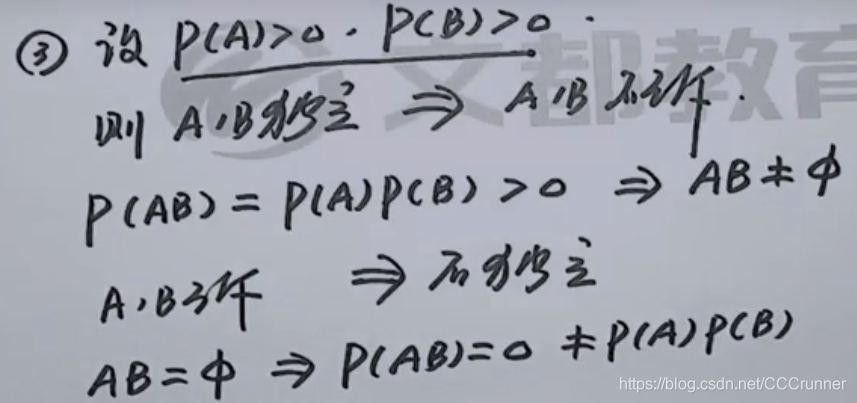 ③ 设 P(A)>0 . P(B)>0 .
则 A,B独立 ⇒ A,B 不互斥 .
P(AB) = P(A)P(B) > 0 ⇒ AB ≠ φ
A,B互斥 ⇒ 不独立
AB = φ ⇒ P(AB)=0 ≠ P(A)P(B)
文都教育
https://blog.csdn.net/CCCrunner